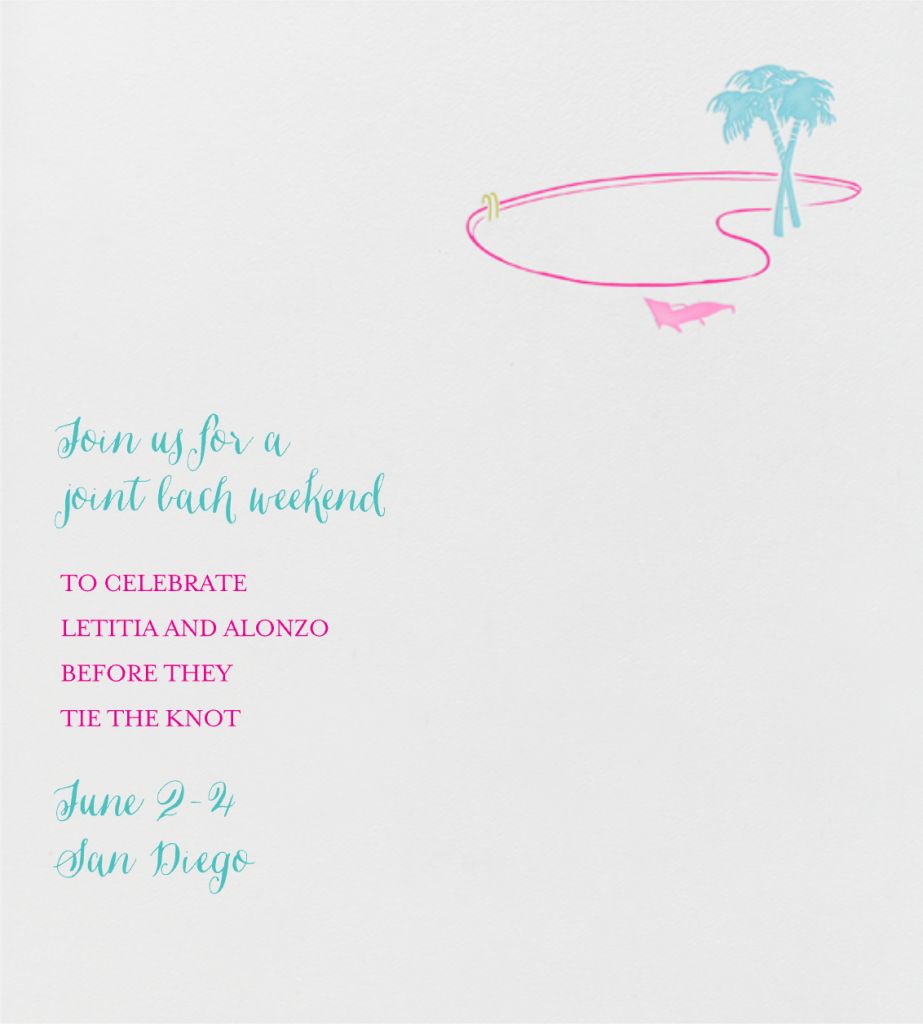 Join us for a
joint bach weekend
TO CELEBRATE
LETITIA AND ALONZO
BEFORE THEY
TIE THE KNOT
June 2-4
San Diego